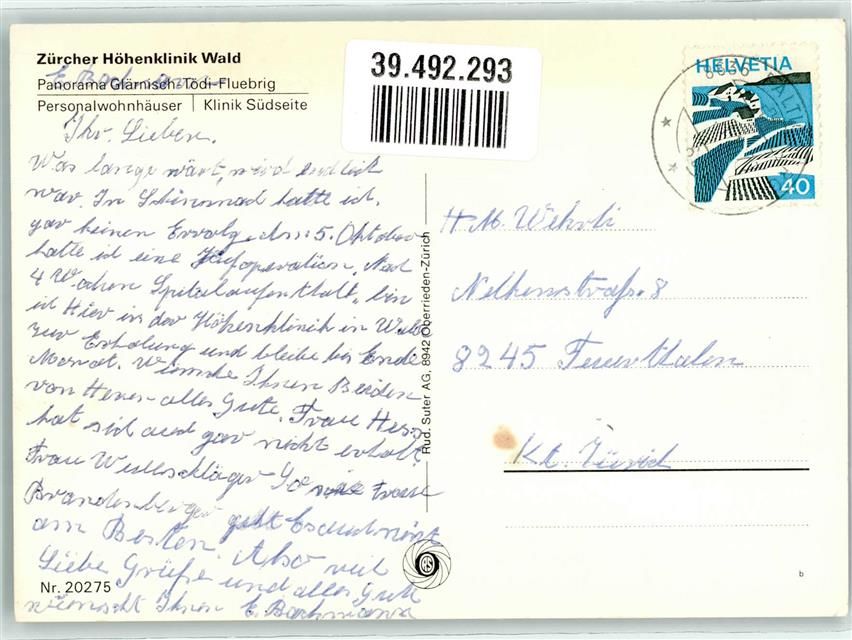 Zürcher Höhenklinik Wald
E. Bachmann
Panorama Glärnisch-Tödi-Fluebrig
Personalwohnhäuser | Klinik Südseite
39.492.293
HELVETIA
40
8636
Ihr Lieben.
Was lange wärt, wird endlich
war. In Schinznad hatte ich
gar keinen Ervolg. Am 5. Oktober
hatte ich eine Hüfoperation. Nach
4 Wochen Spitalaufenthalt, bin
ich Hier in der Höhenklinik in Wald
zur Erholung und bleibe bis Ende
Monat. Wünsche Ihnen Beiden
von Herzen alles Gute. Frau Hess
hat sich auch gar nicht erholt.
Frau Wullschläger Frau
Brandenberger geht Es
am Besten. Also viel
Liebe Grüße und alles Gute
wünscht Ihnen E. Bachmann
Rud. Suter AG, 8942 Oberrieden-Zürich
H. M. Wehrli
Nelkenstraße. 8
8245 Feuerthalen
Kt. Zürich
Nr. 20275
b